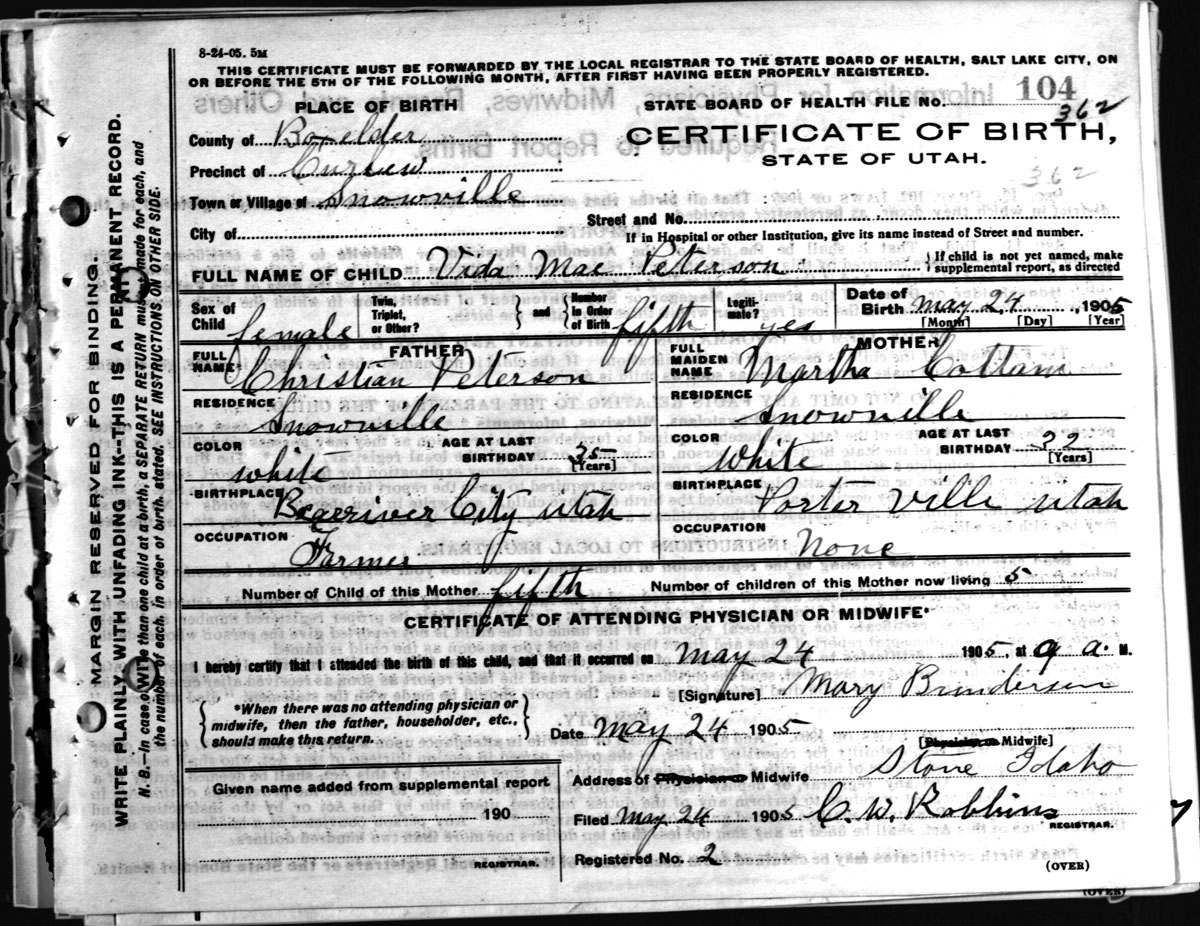 8-24-05. 5M
THIS CERTIFICATE MUST BE FORWARDED BY THE LOCAL REGISTRAR TO THE STATE BOARD OF HEALTH, SALT LAKE CITY, ON
OR BEFORE THE 5TH OF THE FOLLOWING MONTH, AFTER FIRST HAVING BEEN PROPERLY REGISTERED.
PLACE OF BIRTH
STATE BOARD OF HEALTH FILE No. 104
362
County of Boxelder
CERTIFICATE OF BIRTH,
STATE OF UTAH.
Precinct of Curlew
362
Town or Village of Snowville
Street and No.
City of
If in Hospital or other Institution, give its name instead of Street and number.
FULL NAME OF CHILD Vida Mae Peterson } If child is not yet named, make supplemental report, as directed
Sex of Child female
Twin, Triplet, or Other? } and { Number in Order of Birth fifth
Legitimate? yes
Date of Birth May 24, 1905
[Month] [Day] [Year]
FATHER
FULL NAME Christian Peterson
RESIDENCE Snowville
COLOR white
AGE AT LAST BIRTHDAY 35 [Years]
BIRTHPLACE Bearriver City Utah
OCCUPATION Farmer
MOTHER
FULL MAIDEN NAME Martha Cottam
RESIDENCE Snowville
COLOR White
AGE AT LAST BIRTHDAY [Years]
BIRTHPLACE Porter Ville Utah
OCCUPATION None
Number of Child of this Mother fifth Number of children of this Mother now living 5
CERTIFICATE OF ATTENDING PHYSICIAN OR MIDWIFE*
I hereby certify that I attended the birth of this child, and that it occurred on May 24 1905, at 9 a. M.
[Signature] Mary Bunderson
{ *When there was no attending physician or midwife, then the father, householder, etc., should make this return. }
Date May 24 1905
[Physician or Midwife]
Given name added from supplemental report
190
REGISTRAR.
Address of Physician or Midwife Stone Idaho
Filed May 24 1905 C. W. Robbins
REGISTRAR.
Registered No. 2
(OVER)
(OVER)
MARGIN RESERVED FOR BINDING.
WRITE PLAINLY WITH UNFADING INK--THIS IS A PERMANENT RECORD.
N. B.—In case of more than one child at a birth, a SEPARATE RETURN must be made for each, and
the number of each, in order of birth, stated. SEE INSTRUCTIONS ON OTHER SIDE.